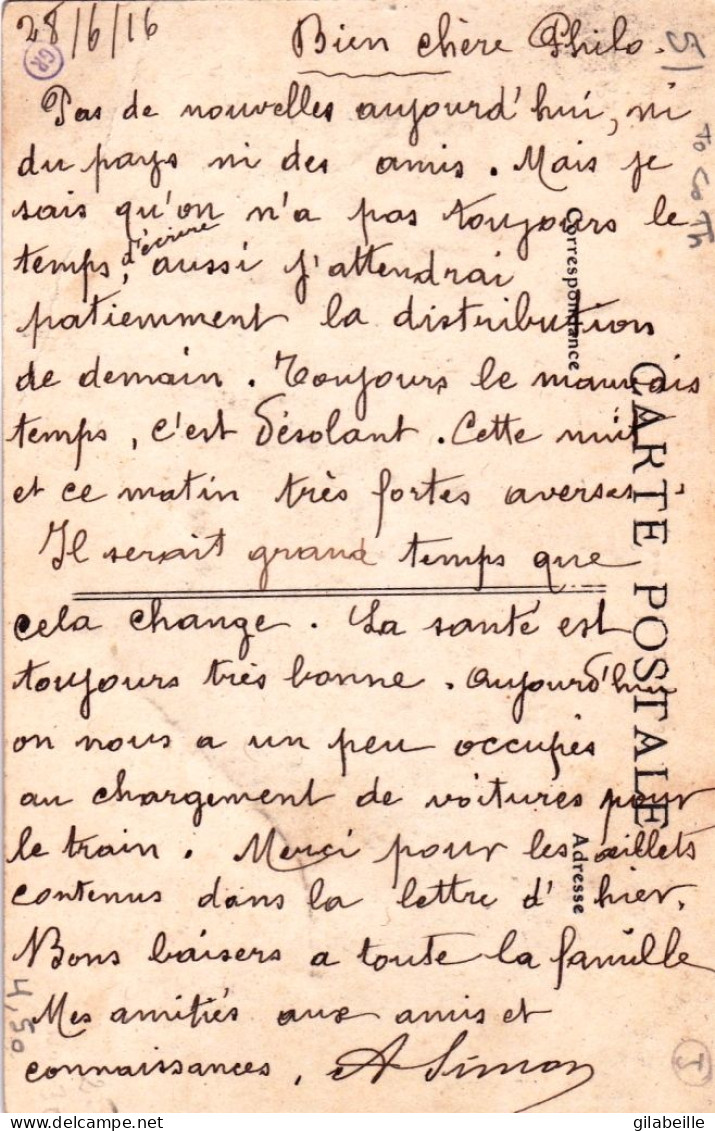 28/6/16
Bien chère Philo.
GR
51
Pas de nouvelles aujourd'hui, ni
du pays ni des amis. Mais je
sais qu'on n'a pas toujours le
temps, d'écrire aussi j'attendrai
patiemment la distribution
de demain. Toujours le mauvais
temps, c'est désolant. Cette nuit
et ce matin très fortes averses
Il serait grand temps que
cela change. La santé est
toujours très bonne. Aujourd'hui
on nous a un peu occupés
au chargement de voitures pour
le train. Merci pour les œillets
contenus dans la lettre d'hier.
Bons baisers a toute la famille
Mes amitiés aux amis et
connaissances, A Simon
Correspondance
CARTE POSTALE
Adresse
4,50
gilabeille